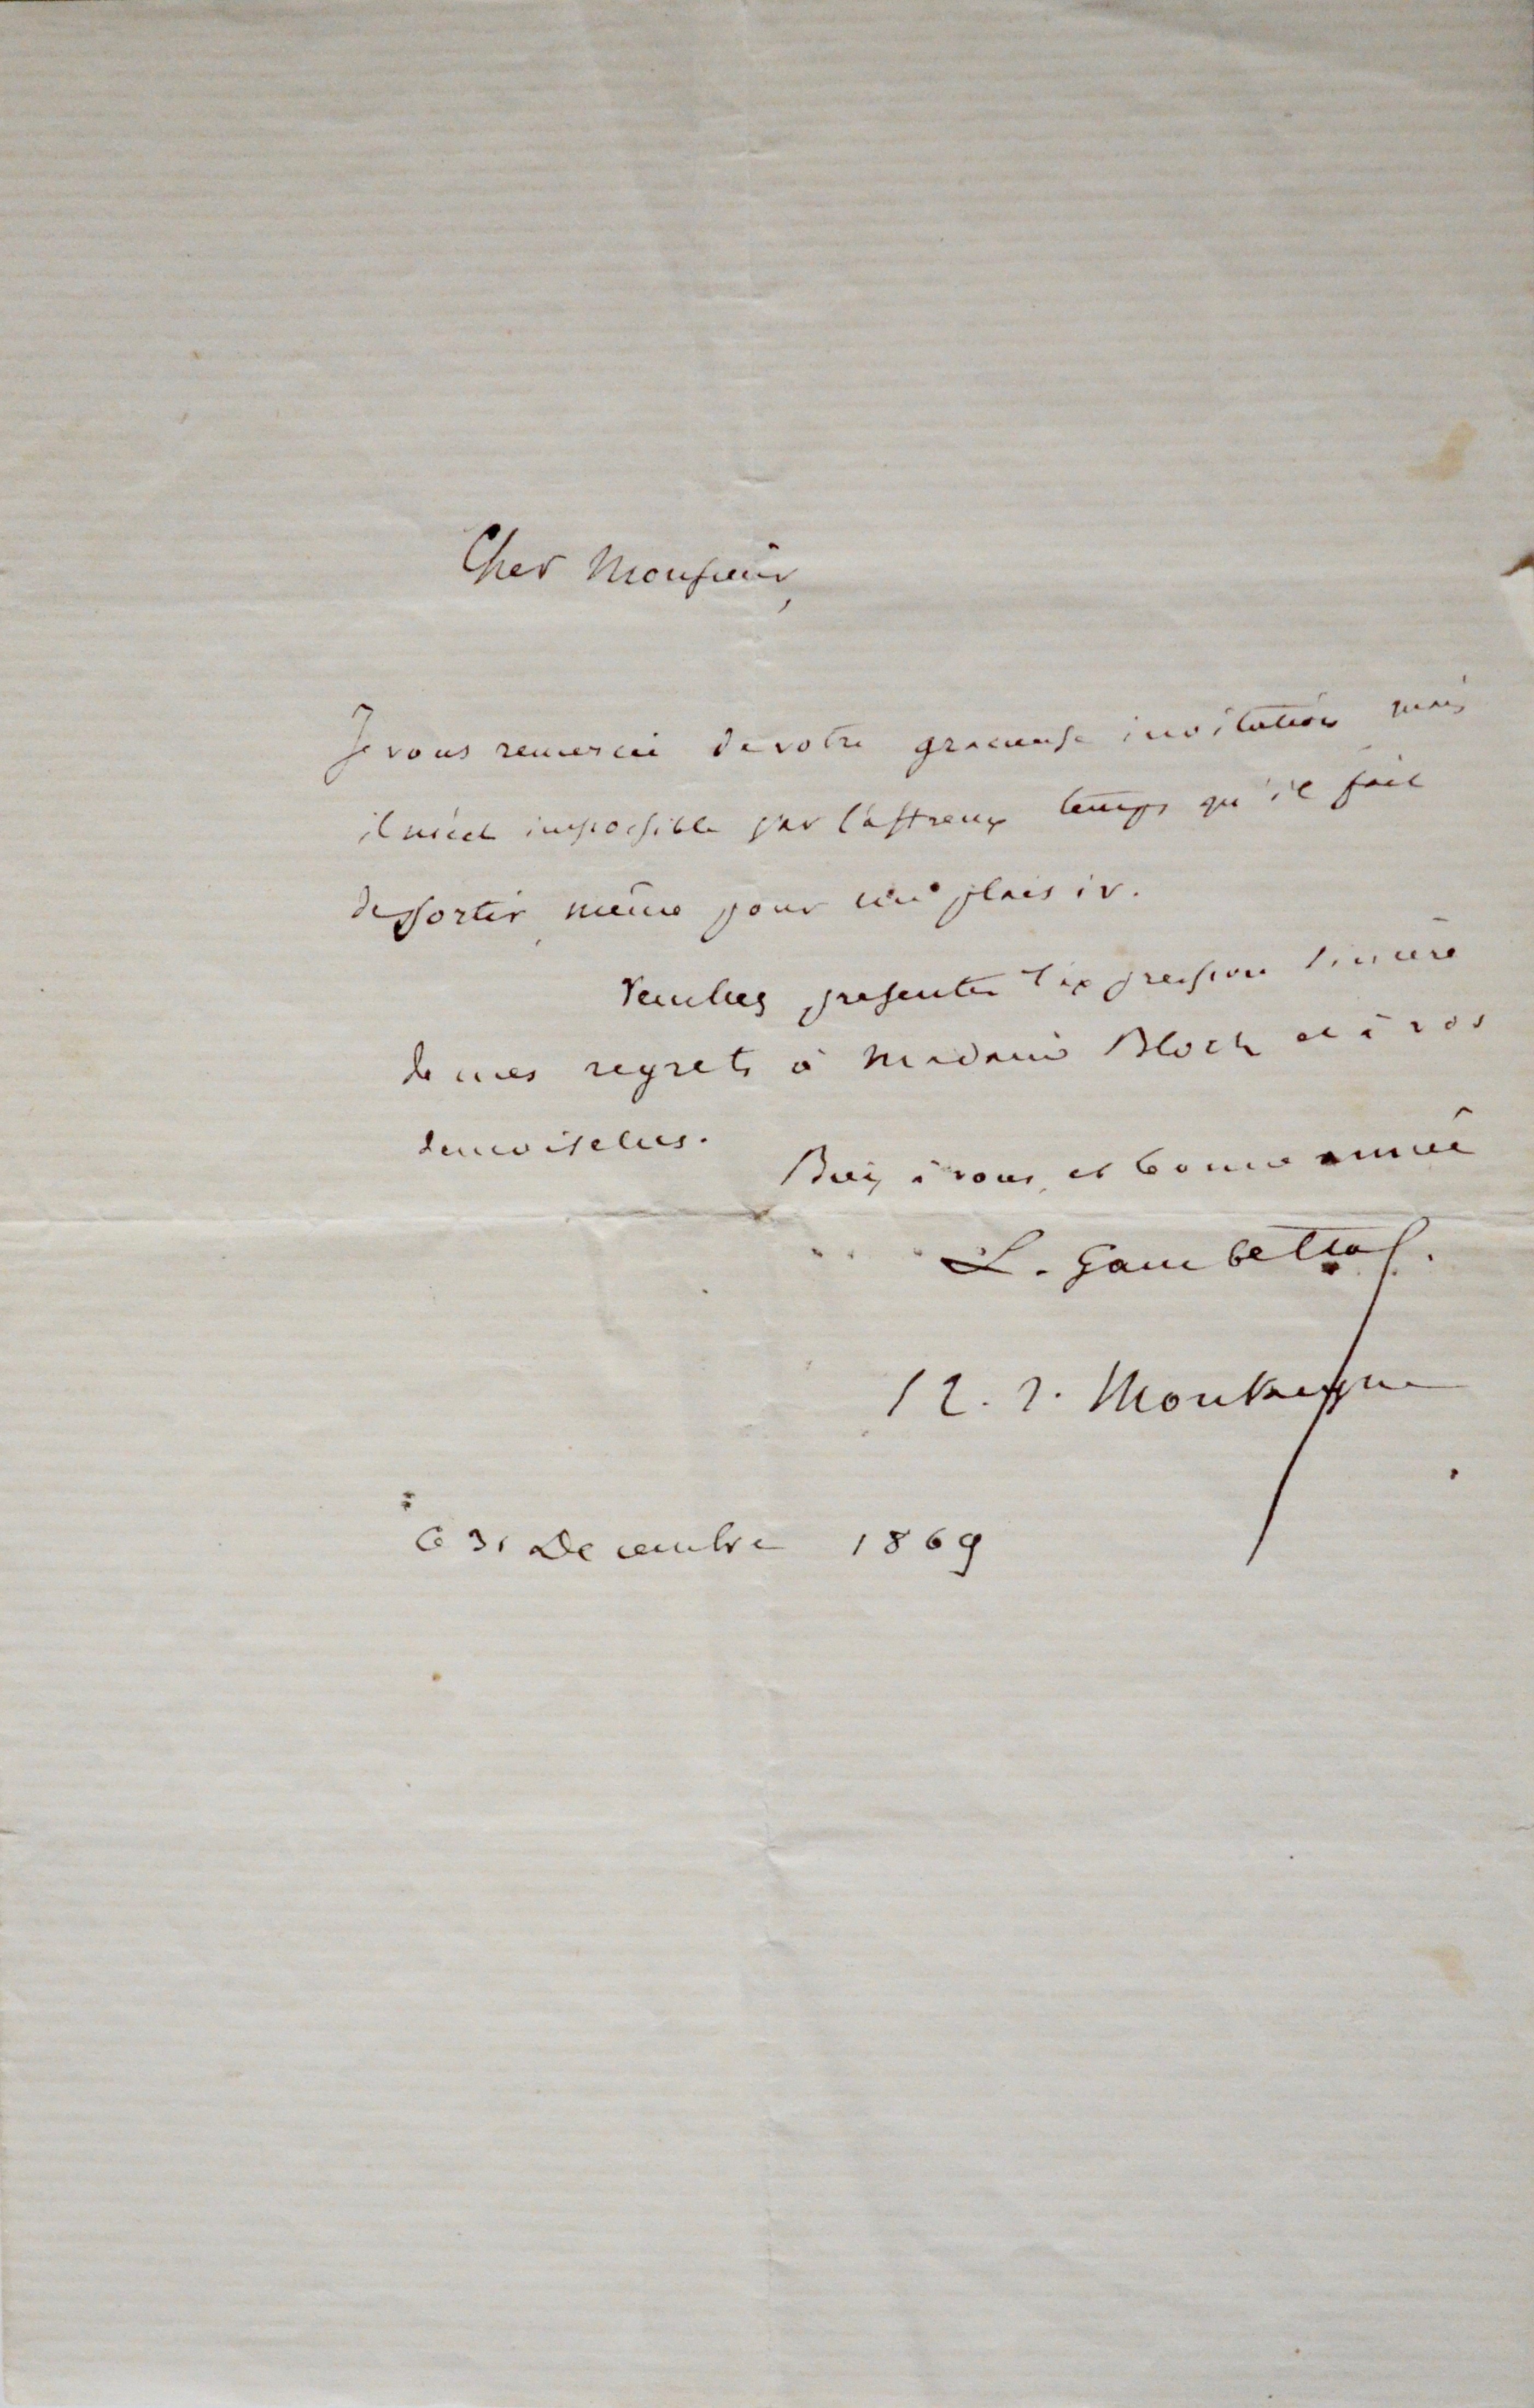 Cher Monsieur,
Je vous remercie de votre gracieuse invitation mais
il m'est impossible par l'affreux temps qu'il fait
de sortir, même pour un plaisir.
Veuillez presenter l'expression sincère
de mes regrets à Madame Bloch et à vos
demoiselles.
Bien à vous, et bonne année
L. Gambetta.
12. r. Montaigne
Ce 31 Decembre 1869